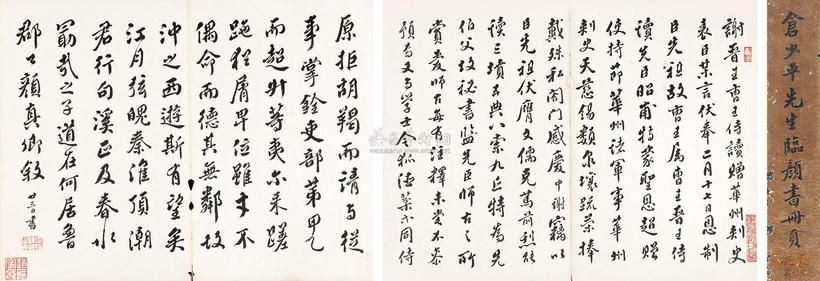 倉少平先生臨顏書冊頁
謝晉王曹王侍讀贈華州刺史
表臣某言伏奉二月十七日恩制
臣先祖故曹王属曹王晉王侍
讀先臣昭甫特蒙聖恩超贈
使持節華州諸軍事華州
刺史天慈錫類尔瓌疏榮捧
戴殊私闔門感慶中謝竊以
臣先祖伏膺文儒克篤前烈能
讀三墳五典八索九丘特為先
伯父故秘書監先臣師古之所
賞愛師古每有注釋未嘗不參
預焉又与學士令狐德棻不同侍
原拒胡羯而請与從
事掌銓吏部第甲乙
而超升等夷尔来蹉
跎猶屑卑位雖才不
偶命而德其無鄰故
沖之西遊斯有望矣
江月弦魄秦淮頂潮
君行句溪正及春水
勗哉之子道在何居魯
郡公顏真卿敘 廿三日書